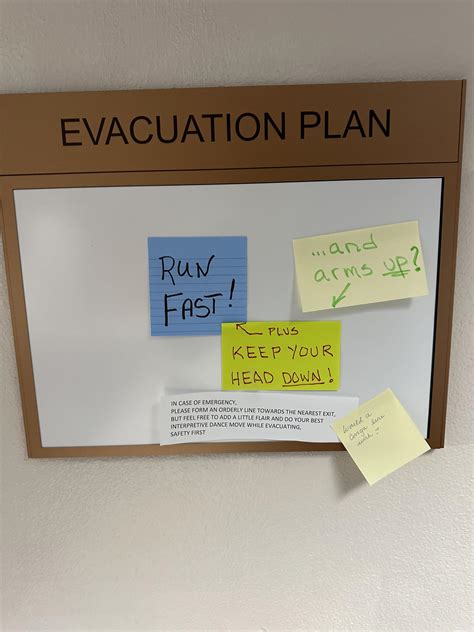 EVACUATION PLAN
RUN
FAST!
...and
arms up?
PLUS
KEEP YOUR
HEAD DOWN!
IN CASE OF EMERGENCY,
PLEASE FORM AN ORDERLY LINE TOWARDS THE NEAREST EXIT,
BUT FEEL FREE TO ADD A LITTLE FLAIR AND DO YOUR BEST
INTERPRETIVE DANCE MOVE WHILE EVACUATING,
SAFETY FIRST
Would a
Conga line